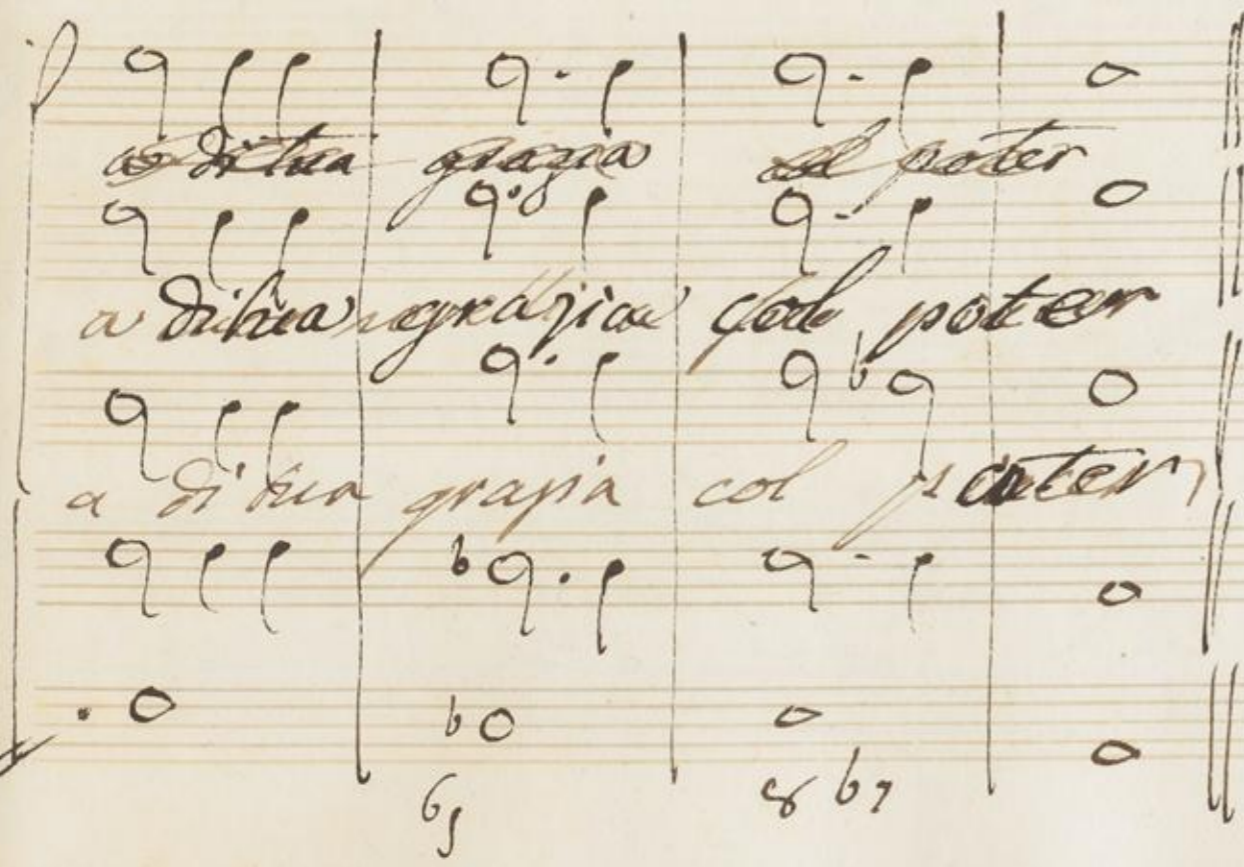 a di tua grazia col poter
a di tua grazia col poter
a di tua grazia col poter
6 5
8 b7